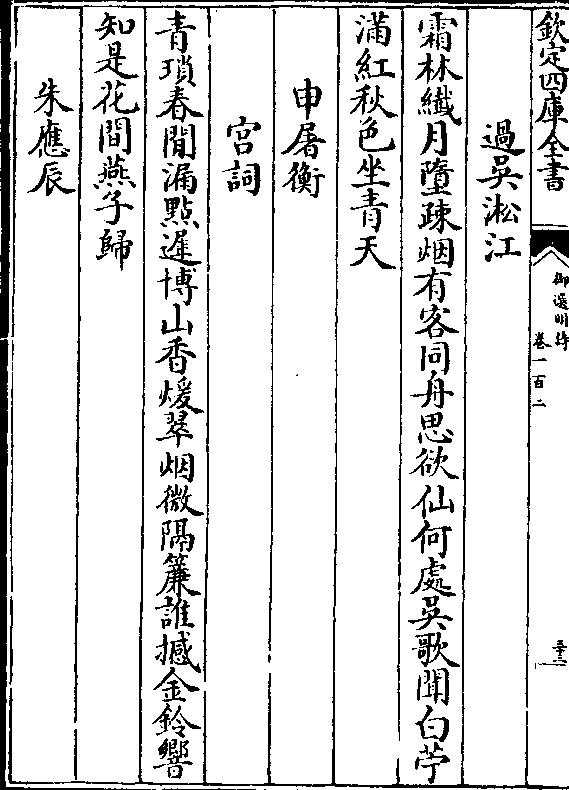 欽定四庫全書
御選明詩
卷一百二
三十二
過吳淞江
霜林纖月墮疎烟有客同舟思欲仙何處吳歌聞白苧
滿紅秋色坐青天
申屠衡
宮詞
青瑣春閒漏點遲博山香煖翠烟微隔簾誰撼金鈴響
知是花間燕子歸
朱應辰